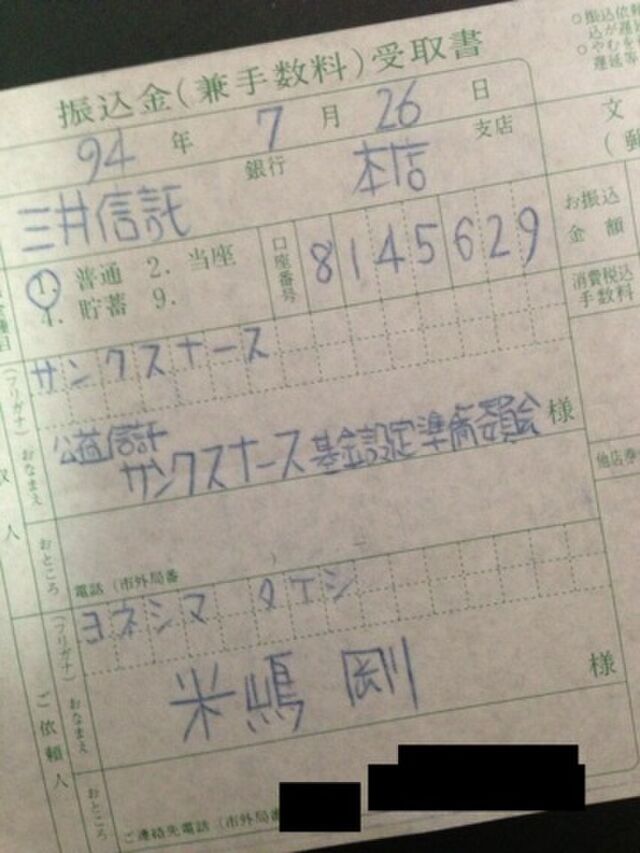 振込金(兼手数料)受取書
○振込依頼
込が遅延
○やむを得
遅延等
94 年 7 月 26 日
三井信託 銀行 本店 支店
文
(郵
① 普通 2. 当座
4. 貯蓄 9.
口座番号 8145629
お振込
金額
消費税込
手数料
(フリガナ) サンクスナース
おなまえ 公益信託
サンクスナース基金設定準備委員会 様
他店券
人
おところ
電話(市外局番 )
(フリガナ) ヨネシマ タエシ
おなまえ 米嶋 剛 様
ご依頼人
おところ
ご連絡先電話(市外局番